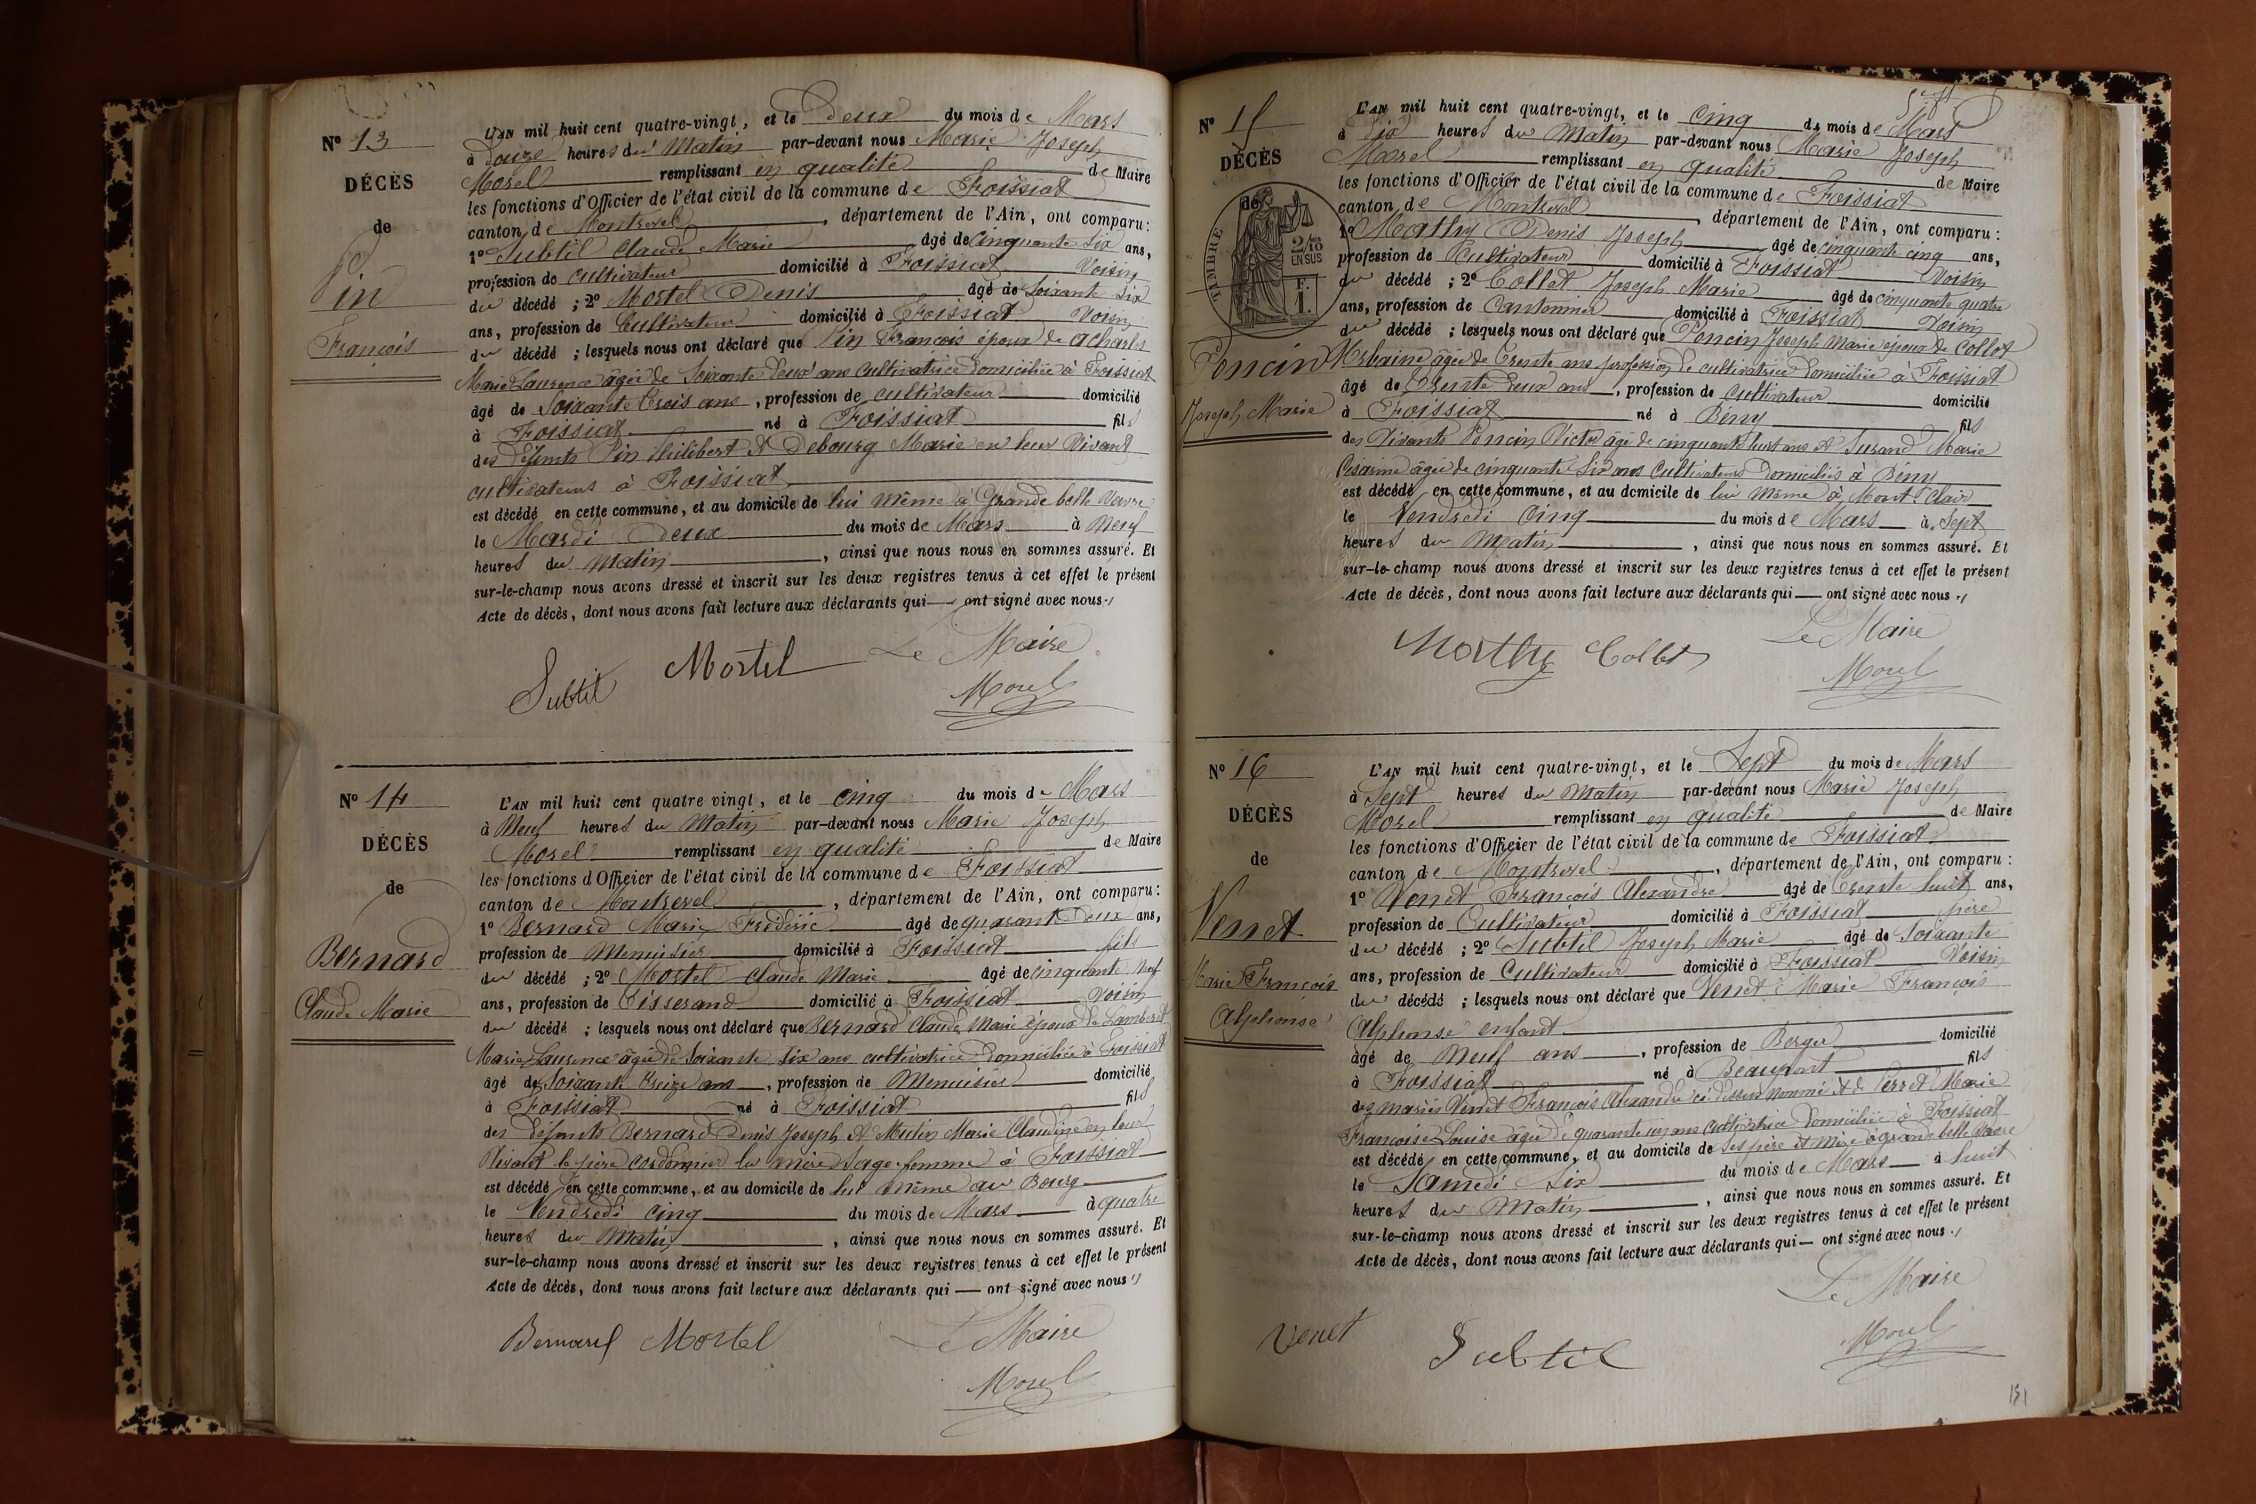 N° 13
DÉCÈS
de
Pin
François
L'AN mil huit cent quatre-vingt, et le Deux du mois de Mars
à Douze heures du Matin par-devant nous Marie Joseph
Morel remplissant en qualité de Maire
les fonctions d'Officier de l'état civil de la commune de Foissiat
canton de Montrevel, département de l'Ain, ont comparu:
1° Subtil Claude Marie âgé de Cinquante Six ans,
profession de cultivateur domicilié à Foissiat Voisin
du décédé ; 2° Mortel Denis âgé de Soixante Six
ans, profession de Cultivateur domicilié à Foissiat Voisin
du décédé ; lesquels nous ont déclaré que Pin François époux de Acharles
Marie Laurence âgée de Soixante Deux ans Cultivatrice Domiciliée à Foissiat
âgé de Soixante trois ans, profession de cultivateur domicilié
à Foissiat né à Foissiat fils
des défunts Pin Philibert & Debourg Marie en leur Vivant
cultivateurs à Foissiat
est décédé en cette commune, et au domicile de lui même à Grande belle Vavre
le Mardi Deux du mois de Mars à Neuf
heures du Matin, ainsi que nous nous en sommes assuré. Et
sur-le-champ nous avons dressé et inscrit sur les deux registres tenus à cet effet le présent
Acte de décès, dont nous avons fait lecture aux déclarants qui — ont signé avec nous.
Subtil Mortel Le Maire
Morel
N° 14
DÉCÈS
de
Bernard
Claude Marie
L'AN mil huit cent quatre vingt, et le cinq du mois de Mars
à Neuf heures du Matin par-devant nous Marie Joseph
Morel remplissant en qualité de Maire
les fonctions d'Officier de l'état civil de la commune de Foissiat
canton de Montrevel, département de l'Ain, ont comparu:
1° Bernard Marie Frédéric âgé de quarante Deux ans,
profession de Menuisier domicilié à Foissiat fils
du décédé ; 2° Mortel Claude Marie âgé de cinquante Neuf
ans, profession de Tisserand domicilié à Foissiat Voisin
du décédé ; lesquels nous ont déclaré que Bernard Claude Marie époux de Lamberet
Marie Laurence âgée de Soixante Six ans cultivatrice Domiciliée à Foissiat
âgé de Soixante treize ans, profession de Menuisier domicilié
à Foissiat né à Foissiat fils
des défunts Bernard Denis Joseph & Mutin Marie Claudine en leur
Vivant le père cordonnier la mère Sage-femme à Foissiat
est décédé en cette commune, et au domicile de lui même au Bourg
le Vendredi cinq du mois de Mars à quatre
heures du Matin, ainsi que nous nous en sommes assuré. Et
sur-le-champ nous avons dressé et inscrit sur les deux registres tenus à cet effet le présent
Acte de décès, dont nous avons fait lecture aux déclarants qui — ont signé avec nous
Bernard Mortel Le Maire
Morel
N° 15
DÉCÈS
de
TIMBRE
2/10
EN SUS
F.
1.
Poncin
Joseph Marie
L'AN mil huit cent quatre-vingt, et le Cinq du mois de Mars
à Dix heures du Matin par-devant nous Marie Joseph
Morel remplissant en qualité de Maire
les fonctions d'Officier de l'état civil de la commune de Foissiat
canton de Montrevel, département de l'Ain, ont comparu:
1° Mathy Denis Joseph âgé de cinquante cinq ans,
profession de Cultivateur domicilié à Foissiat Voisin
du décédé ; 2° Collet Joseph Marie âgé de cinquante quatre
ans, profession de Cantonnier domicilié à Foissiat Voisin
du décédé ; lesquels nous ont déclaré que Poncin Joseph Marie époux de Collet
Urbaine âgée de Trente ans profession de cultivatrice Domiciliée à Foissiat
âgé de Trente Deux ans, profession de Cultivateur domicilié
à Foissiat né à Bény fils
des Vivants Poncin Victor âgé de cinquante huit ans & Surand Marie
Césarine âgée de cinquante Six ans Cultivateurs Domiciliés à Bény
est décédé en cette commune, et au domicile de lui même à Mont-Clair
le Vendredi Cinq du mois de Mars à Sept
heures du Matin, ainsi que nous nous en sommes assuré. Et
sur-le-champ nous avons dressé et inscrit sur les deux registres tenus à cet effet le présent
Acte de décès, dont nous avons fait lecture aux déclarants qui — ont signé avec nous.
Mathy Collet Le Maire
Morel
N° 16
DÉCÈS
de
Venet
Marie François
Alphonse
L'AN mil huit cent quatre-vingt, et le Sept du mois de Mars
à Sept heures du Matin par-devant nous Marie Joseph
Morel remplissant en qualité de Maire
les fonctions d'Officier de l'état civil de la commune de Foissiat
canton de Montrevel, département de l'Ain, ont comparu:
1° Venet François Alexandre âgé de Trente huit ans,
profession de Cultivateur domicilié à Foissiat père
du décédé ; 2° Subtil Joseph Marie âgé de Soixante
ans, profession de Cultivateur domicilié à Foissiat Voisin
du décédé ; lesquels nous ont déclaré que Venet Marie François
Alphonse enfant
âgé de Neuf ans, profession de Berger domicilié
à Foissiat né à Beaupont fils
des mariés Venet François Alexandre ci-dessus nommé & de Perret Marie
Françoise Louise âgée de quarante un ans cultivatrice Domiciliée à Foissiat
est décédé en cette commune, et au domicile de ses père et mère à grande belle Vavre
le Samedi Six du mois de Mars à huit
heures du Matin, ainsi que nous nous en sommes assuré. Et
sur-le-champ nous avons dressé et inscrit sur les deux registres tenus à cet effet le présent
Acte de décès, dont nous avons fait lecture aux déclarants qui — ont signé avec nous.
Le Maire
Venet Subtil Morel
151